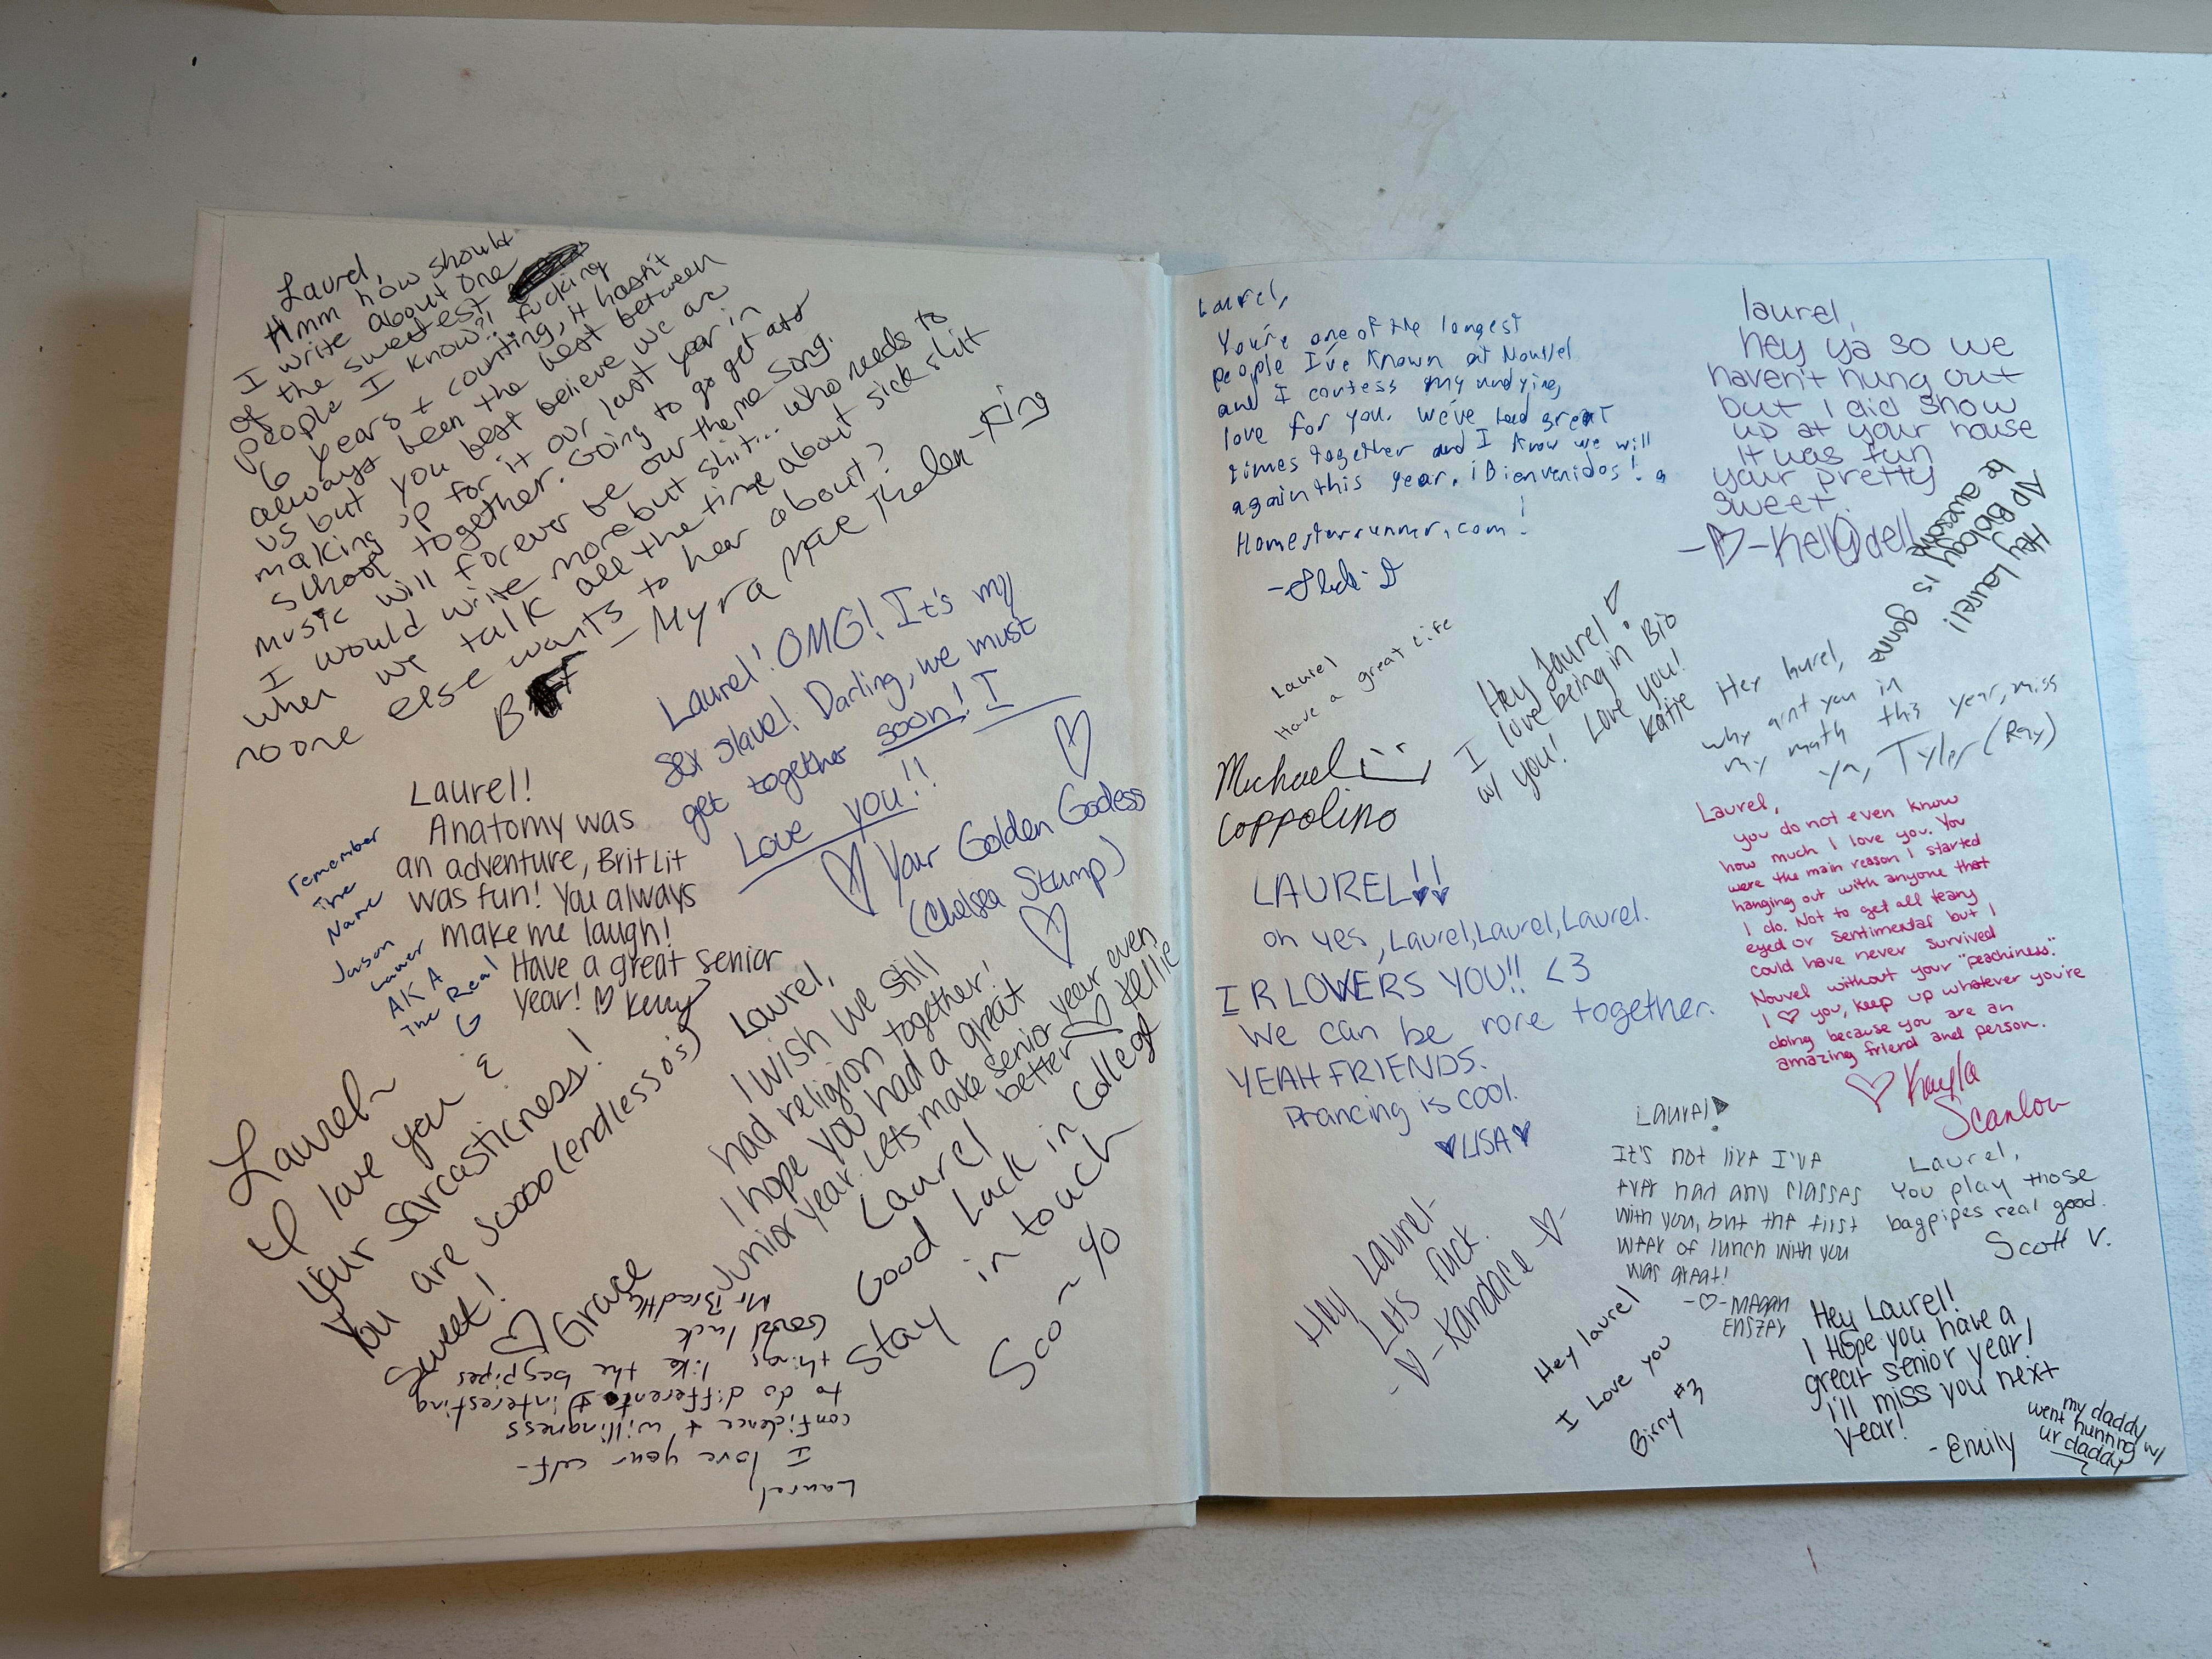 Laurel,
Hmm how should
I write about one
of the sweetest
people I know?! fucking
6 years + counting, it hasn't
always been the best between
us but you best believe we are
making up for it our last year in
school together. Going to go get
music will forever be our theme song.
I would write more but shit... who needs to
when we talk all the time about sick shit
no one else wants to hear about?
- Myra Mae Thelen-King
Laurel! OMG! It's my
sex slave! Darling, we must
get together soon! I
Love you!!
Your Golden Godess
(Chelsea Stump)
Laurel!
Anatomy was
an adventure, Brit Lit
was fun! You always
make me laugh!
Have a great senior
year! ♡ Kerry
remember
The
Name
Jason
Lauer
AKA
The Real
G
Laurel~
I love you &
your sarcasticness!
You are soooo (endless o's)
sweet!
♡ Grace
Laurel,
I wish we still
had religion together!
I hope you had a great
Junior year. Lets make senior year even
better ♡ Kellie
Laurel
Good Luck in College
Stay in touch
Laurel,
I love your self-
confidence + willingness
to do different & interesting
things like the bagpipes
Good luck
Laurel,
You're one of the longest
people I've known at Nouvel
and I confess my undying
love for you. We've had great
times together and I know we will
again this year. ¡Bienvenidos!
Homestarrunner.com!
laurel,
hey ya so we
haven't hung out
but I did show
up at your house
It was fun
your pretty
sweet.
-♡-Kelly Odell
Hey Laurel!
AP Biology is gonna
be awesome
Laurel
Have a great Life
Michael
Coppolino
Hey Laurel!
I love being in Bio
w/ you! Love you!
Katie
Hey laurel,
why aint you in
my math this year, miss
ya, Tyler (Ray)
LAUREL!!
oh yes, Laurel, Laurel, Laurel.
I R LOWERS YOU!! <3
We can be rore together.
YEAH FRIENDS.
Prancing is cool.
♥LISA♥
Laurel,
you do not even know
how much I love you. You
were the main reason I started
hanging out with anyone that
I do. Not to get all teary
eyed or sentimental but I
could have never survived
Nouvel without your "peachiness."
I ♡ you, keep up whatever you're
doing because you are an
amazing friend and person.
♡ Kayla
Scanlon
Laurel!
It's not like I've
ever had any classes
with you, but the first
week of lunch with you
was great!
-♡- Megan
Laurel,
You play those
bagpipes real good.
Scott V.
Hey Laurel-
Lets fuck.
-♡-Kandace-♡-
Hey laurel
I Love you
Birny #3
Hey Laurel!
I Hope you have a
great senior year!
I'll miss you next
year!
-Emily
my daddy
went hunting w/
ur daddy